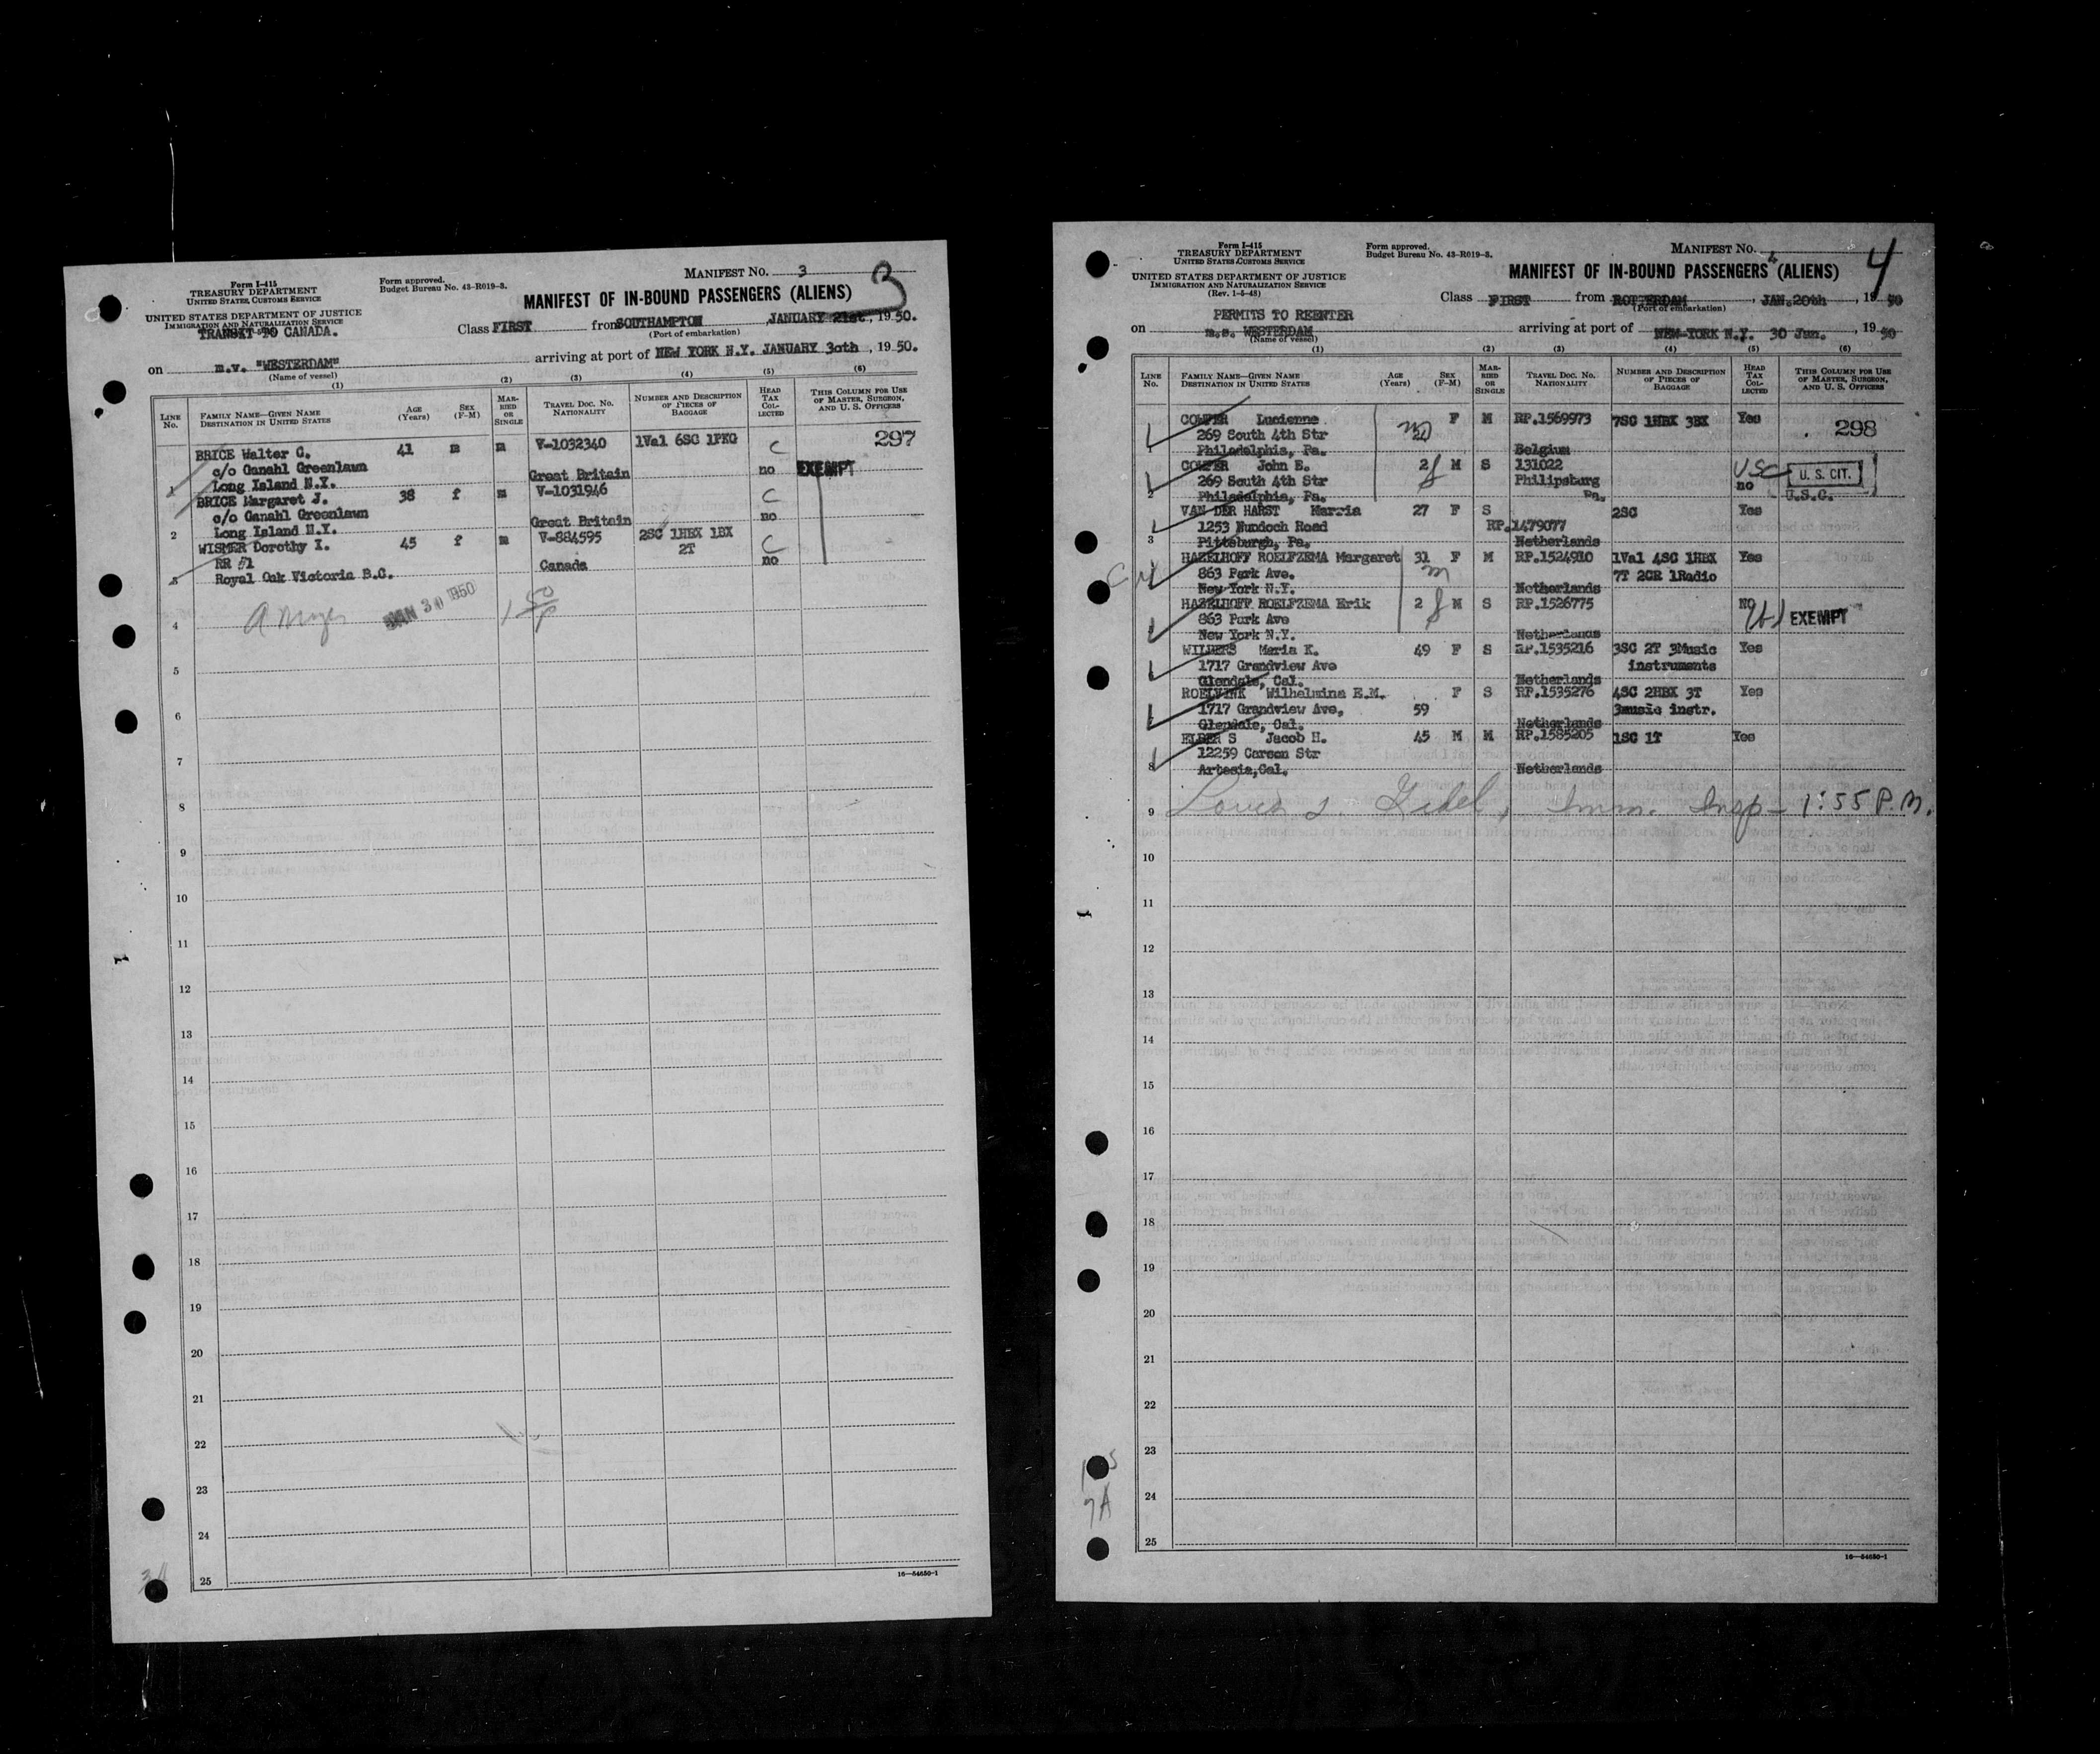 Form I-415
TREASURY DEPARTMENT
UNITED STATES CUSTOMS SERVICE
UNITED STATES DEPARTMENT OF JUSTICE
IMMIGRATION AND NATURALIZATION SERVICE
TRANSIT TO CANADA.
Form approved.
Budget Bureau No. 43-R019-3.
MANIFEST No. 3
3
MANIFEST OF IN-BOUND PASSENGERS (ALIENS)
Class FIRST from SOUTHAMPTON, JANUARY 21st, 1950.
(Port of embarkation)
on m.v. "WESTERDAM" arriving at port of NEW YORK N.Y. JANUARY 30th, 1950.
(Name of vessel)
(1) (2) (3) (4) (5) (6)
LINE No. FAMILY NAME—GIVEN NAME DESTINATION IN UNITED STATES AGE (Years) SEX (F-M) MARRIED OR SINGLE TRAVEL DOC. NO. NATIONALITY NUMBER AND DESCRIPTION OF PIECES OF BAGGAGE HEAD TAX COLLECTED THIS COLUMN FOR USE OF MASTER, SURGEON, AND U. S. OFFICERS
BRICE Walter C. 41 m m V-1032340 1Val 6SC 1PKG C 297
c/o Ganahl Greenlawn Great Britain no EXEMPT
Long Island N.Y.
BRICE Margaret J. 38 f m V-1031946 C
c/o Ganahl Greenlawn Great Britain no
2 Long Island N.Y.
WISMER Dorothy I. 45 f m V-884595 2SC 1HBX 1BX C
RR #1 Canada 2T no
3 Royal Oak Victoria B.C.
4 JAN 30 1950
5
6
7
8
9
10
11
12
13
14
15
16
17
18
19
20
21
22
23
24
25
16—54650-1
Form I-415
TREASURY DEPARTMENT
UNITED STATES CUSTOMS SERVICE
UNITED STATES DEPARTMENT OF JUSTICE
IMMIGRATION AND NATURALIZATION SERVICE
(Rev. 1-5-48)
PERMITS TO REENTER
Form approved.
Budget Bureau No. 43-R019-3.
MANIFEST No.
4
MANIFEST OF IN-BOUND PASSENGERS (ALIENS)
Class FIRST from ROTTERDAM, JAN. 20th, 1950
(Port of embarkation)
on m.s. WESTERDAM arriving at port of NEW-YORK N.Y. 30 Jan., 1950
(Name of vessel)
(1) (2) (3) (4) (5) (6)
LINE No. FAMILY NAME—GIVEN NAME DESTINATION IN UNITED STATES AGE (Years) SEX (F-M) MARRIED OR SINGLE TRAVEL DOC. NO. NATIONALITY NUMBER AND DESCRIPTION OF PIECES OF BAGGAGE HEAD TAX COLLECTED THIS COLUMN FOR USE OF MASTER, SURGEON, AND U. S. OFFICERS
Lucienne F M RP.1569973 7SC 1HBX 3BX Yes 298
269 South 4th Str
1 Philadelphia, Pa. Belgium
John E. 2 M S 131022 USC U. S. CIT.
269 South 4th Str Philipsburg no
2 Philadelphia, Pa. Pa. U.S.C.
VAN DER HARST Marria 27 F S 2SC Yes
1253 Murdoch Road RP.1479077
3 Pittsburgh, Pa. Netherlands
HAZELHOFF ROELFZEMA Margaret 31 F M RP.1524910 1Val 4SC 1HBX Yes
863 Park Ave. 7T 2CR 1Radio
New York N.Y. Netherlands
HAZELHOFF ROELFZEMA Erik 2 M S RP.1526775 NO
863 Park Ave EXEMPT
New York N.Y. Netherlands
WILDERS Maria K. 49 F S RP.1535216 3SC 2T 3Music Yes
1717 Grandview Ave instruments
Glendale, Cal. Netherlands
ROELVINK Wilhelmina E.M. F S RP.1535276 4SC 2HBX 3T Yes
1717 Grandview Ave, 59 3music instr.
Glendale, Cal. Netherlands
Jacob H. 45 M M RP.1585205 1SC 1T Yes
12259 Carson Str
8 Artesia, Cal. Netherlands
9 Imm. Insp - 1:55 P.M.
10
11
12
13
14
15
16
17
18
19
20
21
22
23
24
25
16—54650-1